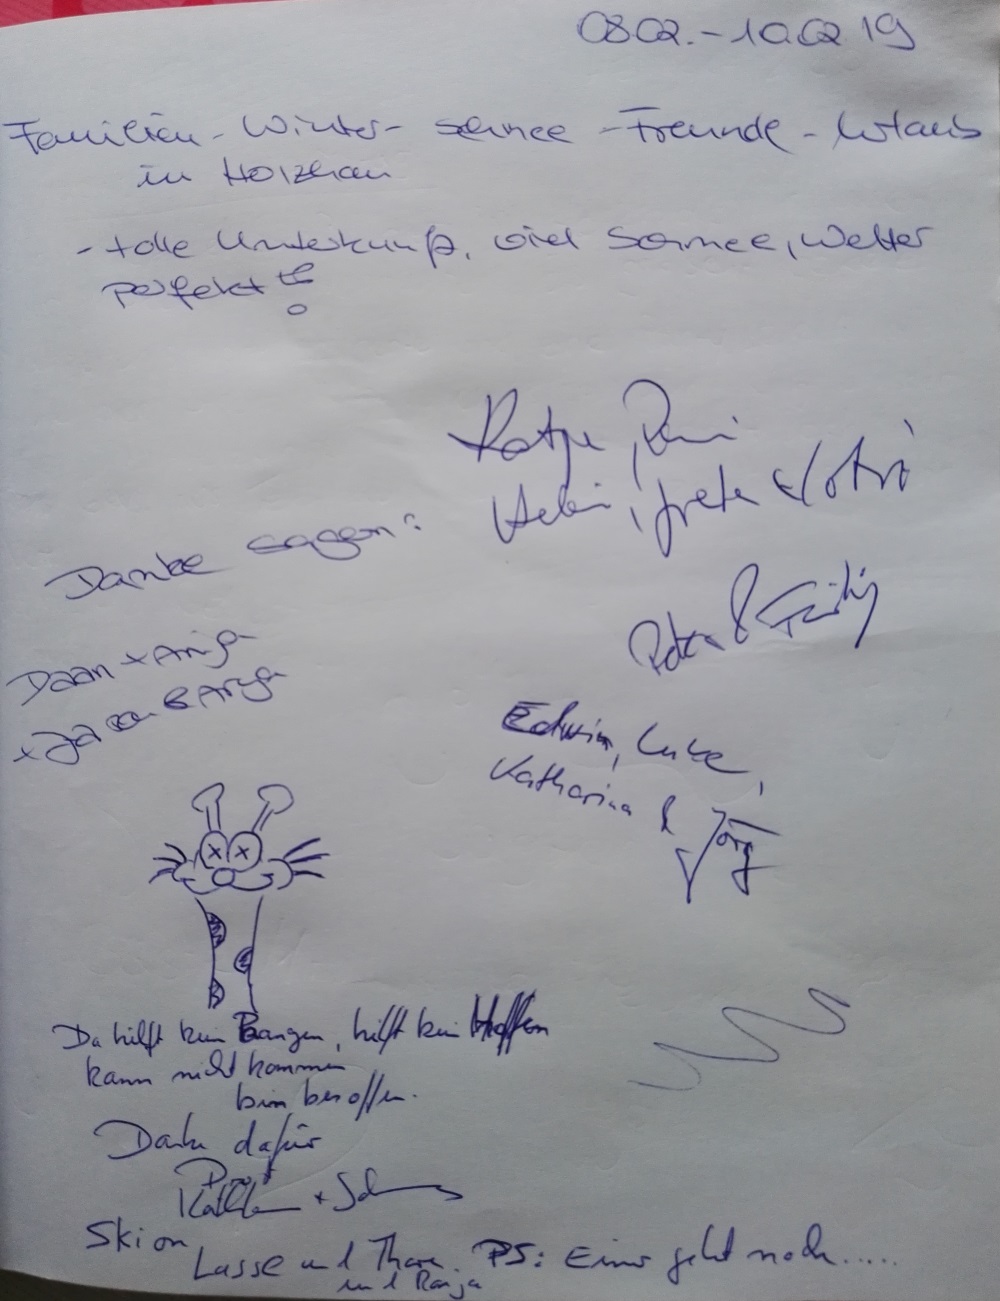 08.02.-10.02 19
Familien-Winter-Schnee-Freunde-Urlaub
in Holzhau
- tolle Unterkunft, viel Schnee, Wetter
perfekt!
Katja,
Peter &
Danke sagen:
Daan + Anja
Edwin, Luke,
Katharina & Jörg
Da hilft kein Bangen, hilft kein Hoffen
kann nicht kommen
bin besoffen.
Danke dafür
Ski on
Lasse und
und Ranja
PS: Einer geht noch.....